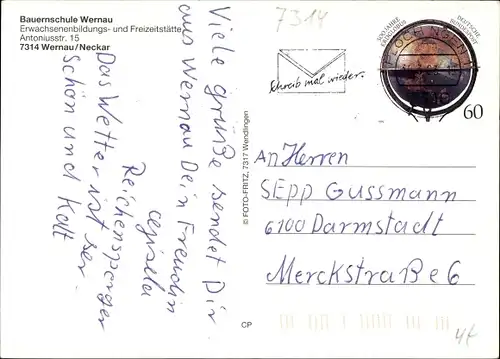 Bauernschule Wernau
Erwachsenenbildungs- und Freizeitstätte
Antoniusstr. 15
7314 Wernau/Neckar
7314
Schreib mal wieder.
500 JAHRE
DEUTSCHE
BUNDESPOST
PLOCHINGEN
60
Viele grüße sendet Dir
aus Wernau Dein Freundin
cegisela
Reichensperger
Das Wetter ist ser
schön und Kalt
© FOTO-FRITZ, 7317 Wendlingen
An Herren
SEPP Gussmann
6100 Darmstadt
Merckstraße 6
CP
4f